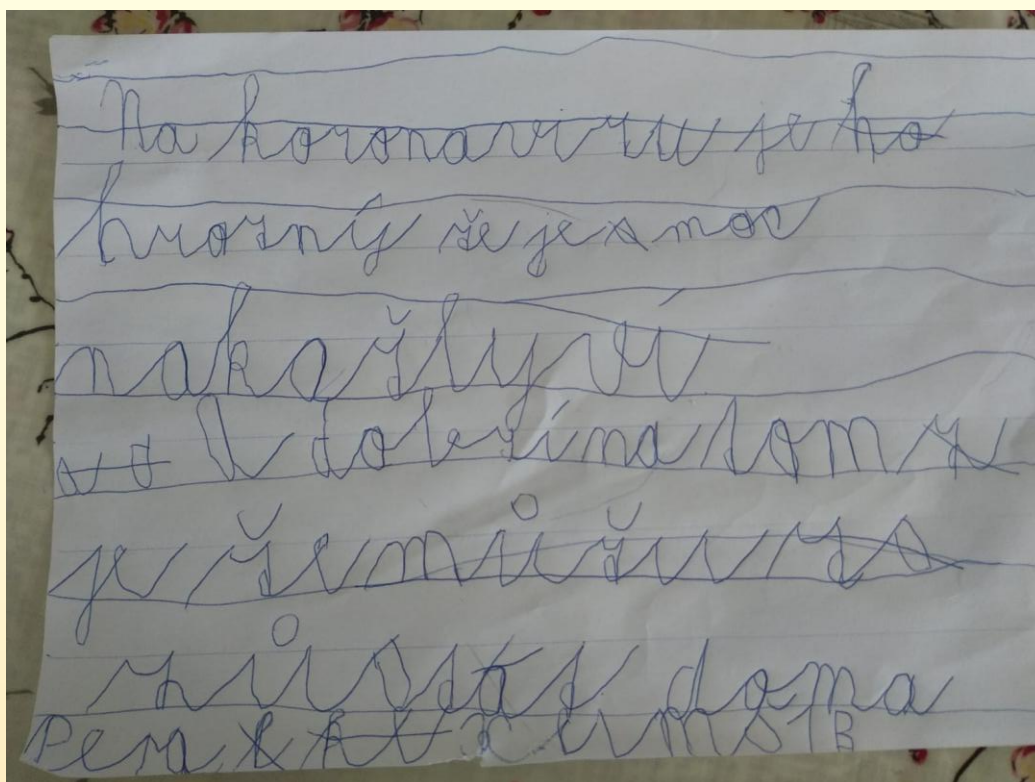 Na koronaviru je ho
hrozný že je moc
nakažlyví
a dobrí na tom
je že můžu
zůstat doma